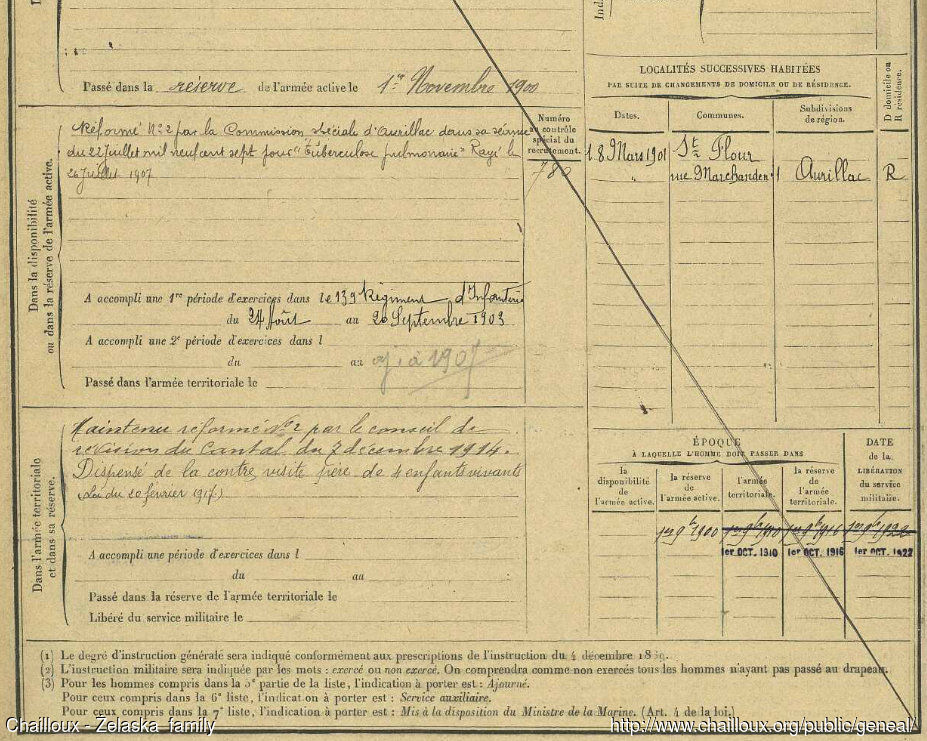 Passé dans la réserve de l'armée active le 1er Novembre 1900
Dans la disponibilité
ou dans la réserve de l'armée active.
Réformé No 2 par la Commission spéciale d'Aurillac dans sa séance
du 22 Juillet mil neuf cent sept pour "Tuberculose pulmonaire" Rayé le
26 Juillet 1907
Numéro
au contrôle
spécial du
recrutement.
780
A accompli une 1re période d'exercices dans le 139 Régiment d'Infanterie
du 24 Août au 20 Septembre 1903
A accompli une 2e période d'exercices dans l
du au aj. à 1907
Passé dans l'armée territoriale le
Dans l'armée territoriale
et dans sa réserve.
Maintenu réformé No 2 par le conseil de
révision du Cantal du 7 décembre 1914.
Dispensé de la contre visite père de 4 enfants vivants
(Loi du 20 février 1917)
A accompli une période d'exercices dans l
du au
Passé dans la réserve de l'armée territoriale le
Libéré du service militaire le
LOCALITÉS SUCCESSIVES HABITÉES
PAR SUITE DE CHANGEMENTS DE DOMICILE OU DE RÉSIDENCE.
D domicile ou
R résidence.
Dates. Communes. Subdivisions
de région.
18 Mars 1901 St Flour
rue Marchande Aurillac R
ÉPOQUE
À LAQUELLE L'HOMME DOIT PASSER DANS
DATE
de la
LIBÉRATION
du service
militaire.
la
disponibilité
de
l'armée active.
la réserve
de
l'armée active.
l'armée
territoriale.
la réserve
de
l'armée
territoriale.
1er 9bre 1900 1er 9bre 1910 1er 9bre 1916 1er 9bre 1922
1er OCT. 1910 1er OCT. 1916 1er OCT. 1922
(1) Le degré d'instruction générale sera indiqué conformément aux prescriptions de l'instruction du 4 décembre
(2) L'instruction militaire sera indiquée par les mots : exercé ou non exercé. On comprendra comme non exercés tous les hommes n'ayant pas passé au drapeau.
(3) Pour les hommes compris dans la 5e partie de la liste, l'indication à porter est : Ajourné.
Pour ceux compris dans la 6e liste, l'indication à porter est : Service auxiliaire.
Pour ceux compris dans la 7e liste, l'indication à porter est : Mis à la disposition du Ministre de la Marine. (Art. 4 de la loi.)
Chailloux - Zelaska family
http://www.chailloux.org/public/geneal/